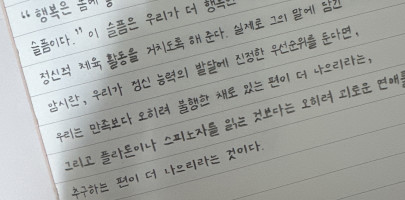 “행복은 몸에
슬픔이다.” 이 슬픔은 우리가 더 행복
정신적 체육 활동을 거치도록 해 준다. 실제로 그의 말에 담긴
암시란, 우리가 정신 능력의 발달에 진정한 우선순위를 둔다면,
우리는 만족보다 오히려 불행한 채로 있는 편이 더 나으리라는,
그리고 플라톤이나 스피노자를 읽는 것보다는 오히려 괴로운 연애를
추구하는 편이 더 나으리라는 것이다.